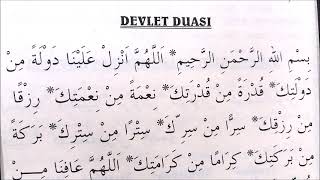 DEVLET DUASI
بِسْمِ اللهِ الرَّحْمَنِ الرَّحِيمِ* اَللَّهُمَّ اَنْزِلْ عَلَيْنَا دَوْلَةً مِنْ
دَوْلَتِكَ* قُدْرَةً مِنْ قُدْرَتِكَ* نِعْمَةً مِنْ نِعْمَتِكَ* رِزْقًا
مِنْ رِزْقِكَ* سِرًّا مِنْ سِرِّكَ* سِتْرًا مِنْ سِتْرِكَ* بَرَكَةً
مِنْ بَرَكَتِكَ* كِرَامًا مِنْ كَرَامَتِكَ* اَللَّهُمَّ عَافِنَا مِنْ